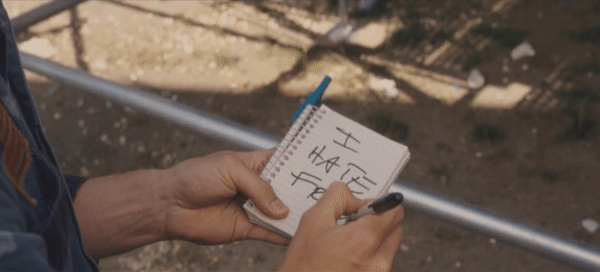 I
HATE